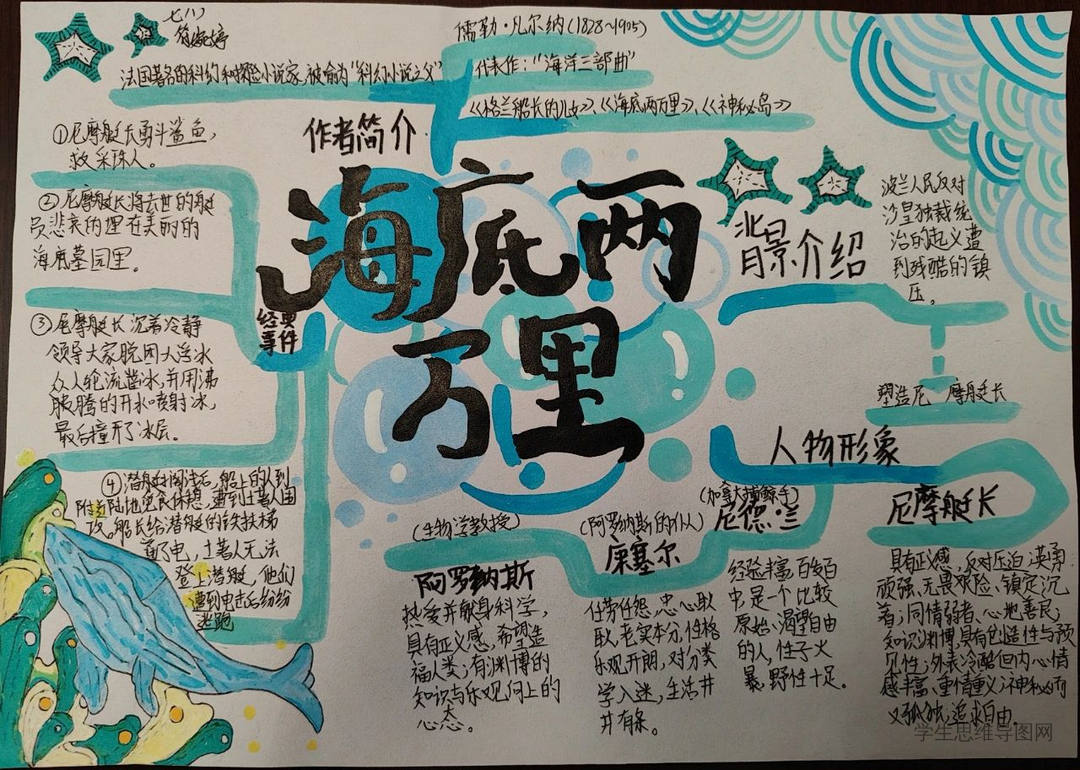 七八)
儒勒·凡尔纳(1828~1905)
法国著名的科幻和探险小说家,被喻为"科幻小说之父"
代表作:"海洋三部曲"
《格兰船长的儿女》、《海底两万里》、《神秘岛》
作者简介
海底两
万里
经典
事件
①尼摩艇长勇斗鲨鱼,
救采珠人。
②尼摩艇长将去世的艇
员悲哀的埋在美丽的
海底墓园里。
③尼摩艇长沉着冷静
领导大家脱困大浮冰
众人轮流凿冰,并用沸
腾的开水喷射冰,
最后撞开了冰层。
④潜艇搁浅后,船上的人到
附近陆地觅食休憩,遭到土著人围
攻。船长给潜艇的铁扶梯
直了电,土著人无法
登上潜艇,他们
遭到电击后纷纷
逃跑
背景介绍
波兰人民反对
沙皇独裁统
治的起义遭
到残酷的镇
压。
塑造尼 摩艇长
人物形象
(生物学教授)
阿罗纳斯
热爱并献身科学,
具有正义感,希望造
福人类,有渊博的
知识与乐观向上的
心态。
(阿罗纳斯的仆人)
康塞尔
任劳任怨,忠心耿
耿,老实本分,性格
乐观开朗,对分类
学入迷,生活井
井有条。
(加拿大捕鲸手)
尼德·兰
经验丰富,百发百
中,是一个比较
原始、渴望自由
的人,性子火
暴,野性十足。
尼摩艇长
具有正义感,反对压迫,英勇
顽强、无畏艰险、镇定沉
著;同情弱者、心地善良;
知识渊博,具有创造性与预
见性;外表冷酷但内心情
感丰富、重情重义;神秘而
又孤独,追求自由。
学生思维导图网